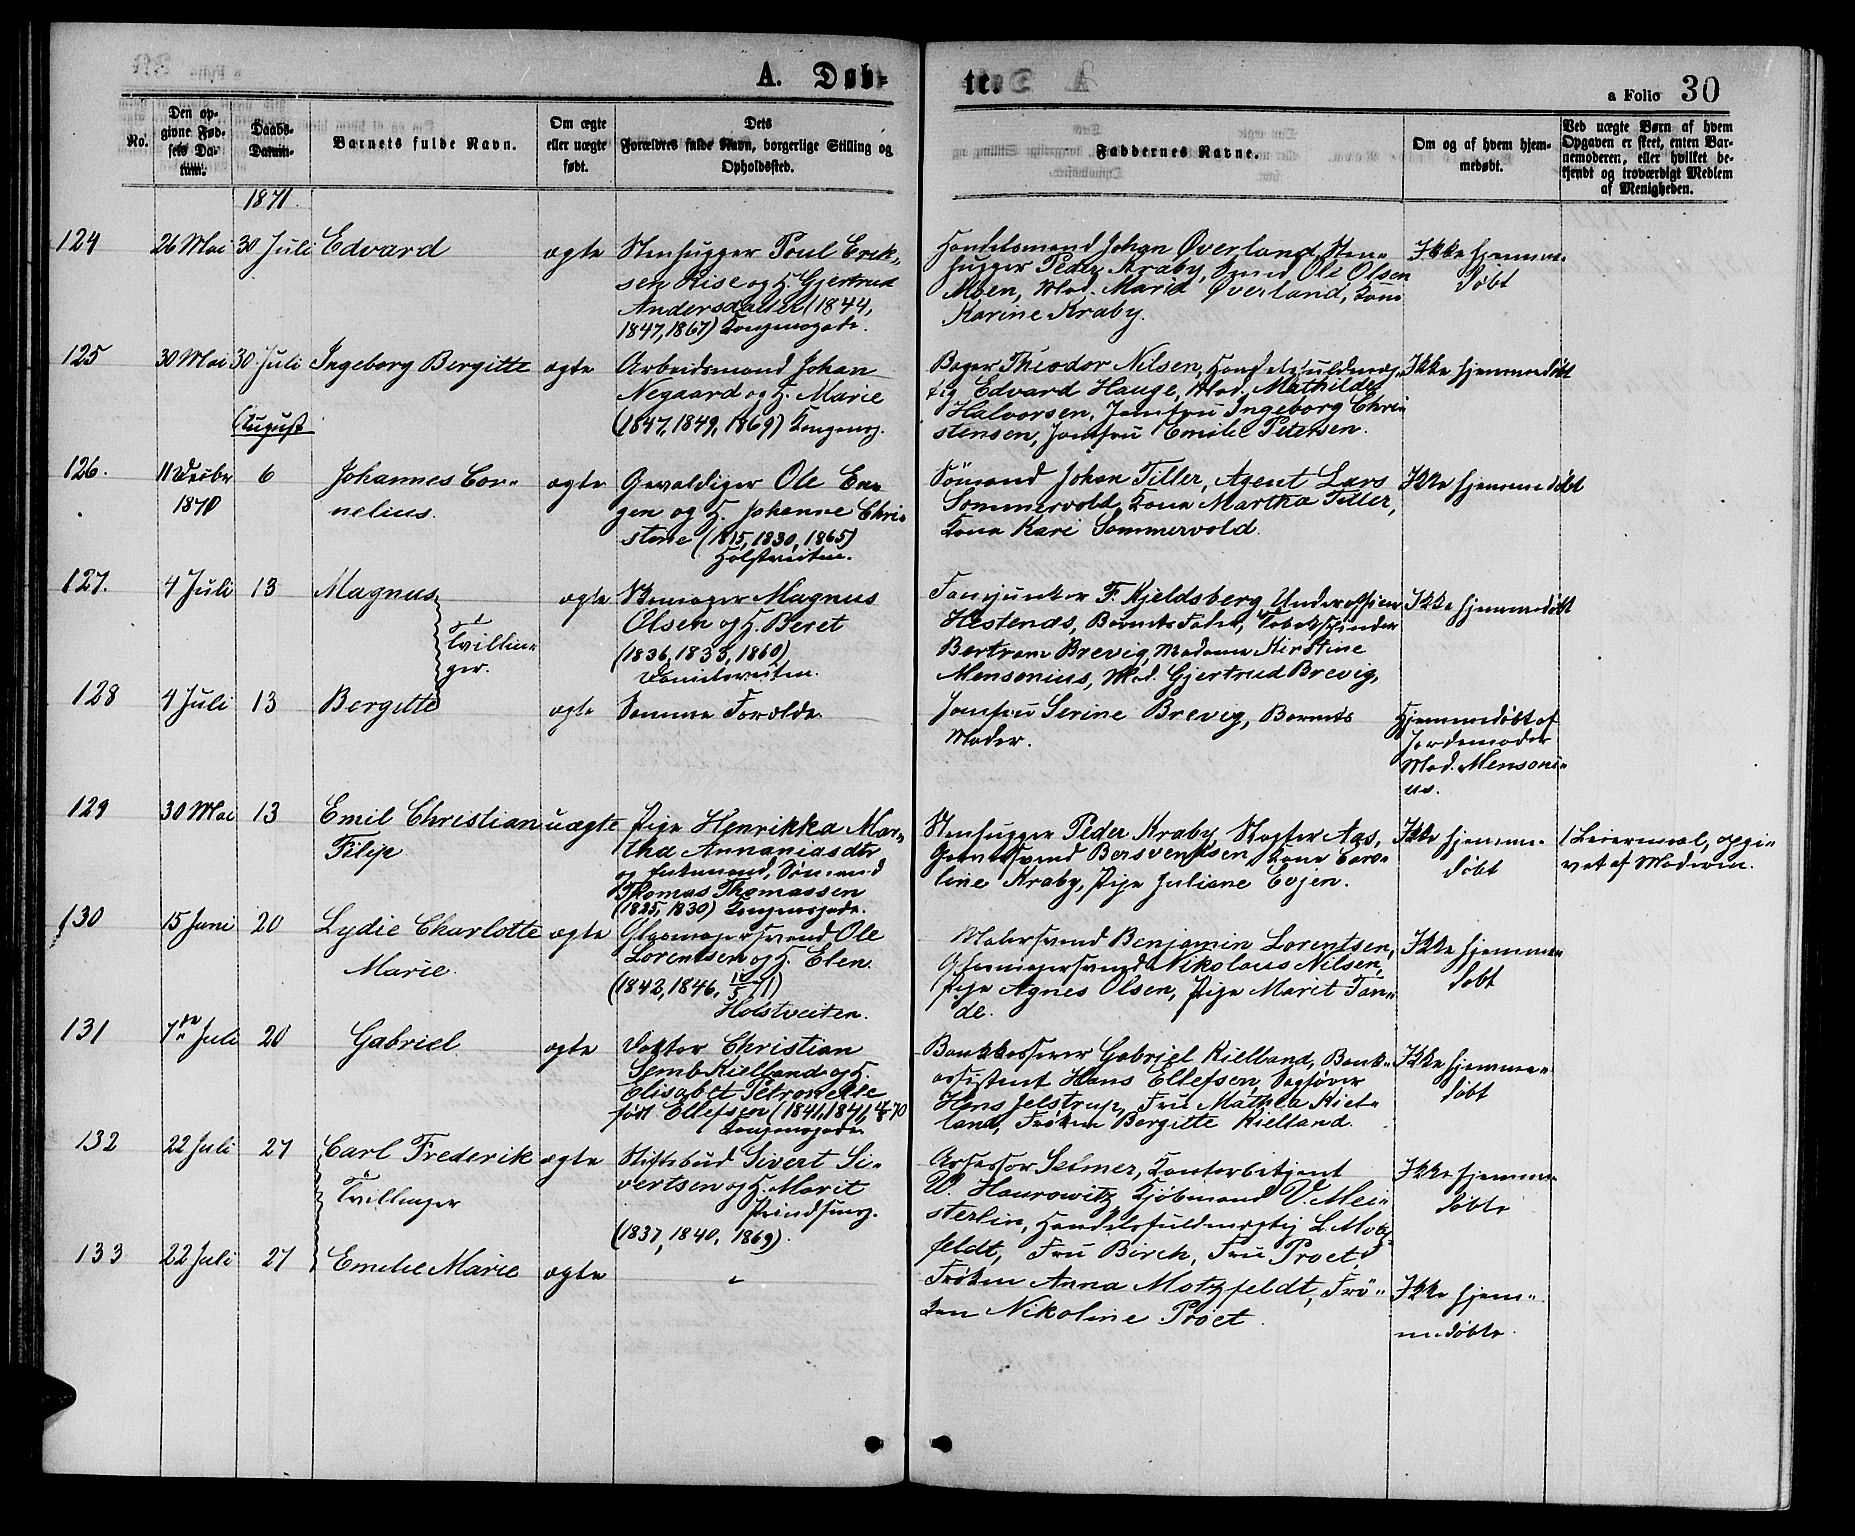 A. Døb-
te.
a Folio 30
No.
Den op-
givne Fød-
sels Da-
tum.
Daabs-
Datum.
Barnets fulde Navn.
Om ægte
eller uægte
født.
Dets
Forældres fulde Navn, borgerlige Stilling og
Opholdssted.
Faddernes Navne.
Om og af hvem hjem-
medøbt.
Ved uægte Børn af hvem
Opgaven er skeet, enten Bar-
nemoderen, eller hvilket be-
kjendt og troværdigt Medlem
af Menigheden.
1871.
124
26 Mai
30 Juli
Edvard
ægte
Stenhugger Poul Erik-
sen Rise og H. Gjertrud
Andersdatter (1844,
1847, 1867) Kongensgade.
Handelsmand Johan Øverland, Sten-
hugger Peder Kraby, Smed Ole Olsen
Moen, Mad. Marie Øverland, Kone
Karine Kraby.
Ikke hjemme-
døbt
125
30 Mai
30 Juli
Ingeborg Bergitte
ægte
Arbeidsmand Johan
Negaard og H. Marie
(1847, 1849, 1869) Kongensg.
Bager Theodor Nilsen, Handelsfuldmæg-
tig Edvard Hauge, Mad. Mathilde
Halvorsen, Jomfru Ingeborg Chri-
stensen, Jomfru Emilie Petersen.
Ikke hjemmedøbt
August
126.
11 Decbr
1870
6
Johannes Cor-
nelius.
ægte
Gevaldiger Ole En-
gen og H. Johanne Chri-
stine (1815, 1830, 1865)
Holstveiten.
Sömand Johan Tiller, Agent Lars
Sommervold, Kone Martha Tiller,
Kone Kari Sommervold.
Ikke hjemmedøbt
127.
4 Juli
13
Magnus
Tvillin-
ger.
ægte
Skomager Magnus
Olsen og H. Beret
(1836, 1833, 1860)
Danielsveiten.
Fanejunker F. Kjeldsberg, Underofficier
Hestenæs, Barnets Fader, Tobakspinder
Bertram Brevig, Madame Kirstine
Mensonius, Mad. Gjertrud Brevig,
Ikke hjemmedøbt
128
4 Juli
13
Bergitte
ægte
Samme Forældre
Jomfru Serine Brevig, Barnets
Moder.
Hjemmedøbt af
Jordemoder
Mad. Mensoni-
us.
129
30 Mai
13
Emil Christian
Filip
uægte
Pige Henrikka Mar-
tha Annaniasdtr
og Enkemand, Sömand
Thomas Thomassen
(1825, 1830) Kongensgade.
Stenhugger Peder Kraby, Slagter Aas,
Garversvend Bersvendsen, Kone Caro-
line Kraby, Pige Juliane Evjen.
Ikke hjemme-
døbt
1 Leiermaal, opgi-
vet af Moderen.
130
15 Juni
20
Lydie Charlotte
Marie.
ægte
Glasmagersvend Ole
Lorentsen og H. Elen.
(1842, 1846, 15/5 71)
Holstveiten.
Malersvend Benjamin Lorentsen,
Glasmagersvend Nikolaus Nilsen,
Pige Agnes Olsen, Pige Marit Tan-
de.
Ikke hjemme-
døbt
131
7de Juli
20
Gabriel
ægte
Doktor Christian
Semb Kielland og H.
Elisabet Petronelle
født Ellefsen (1841, 1841, 4/8 70
Kongensgade
Bankkasserer Gabriel Kielland, Bank-
assistent Hans Ellefsen, Sagfører
Hans Jelstrup, Fru Mathea Kiel-
land, Frøken Bergitte Kielland.
Ikke hjemme-
døbt
132
22 Juli
27
Carl Frederik
Tvillinger
ægte
Stiftsbud Sivert Si-
vertsen og H. Marit
Prindsensg.
(1837, 1840, 1869).
Assessor Selmer, Kontorbetjent
W. Haurowitz, Kjøbmand V. Me-
sterlin, Handelsfuldmægtig L. Motz-
feldt, Fru Birch, Fru Proet,
Ikke hjemme-
døbte
133
22 Juli
27
Emelie Marie
ægte
"
Frøken Anna Motzfeldt, Frø-
ken Nikoline Proet.
Ikke hjem-
medøbte.